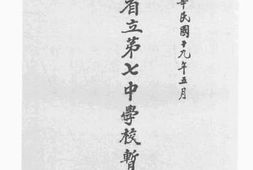 華民國十九年五月
省立第七中學校暫